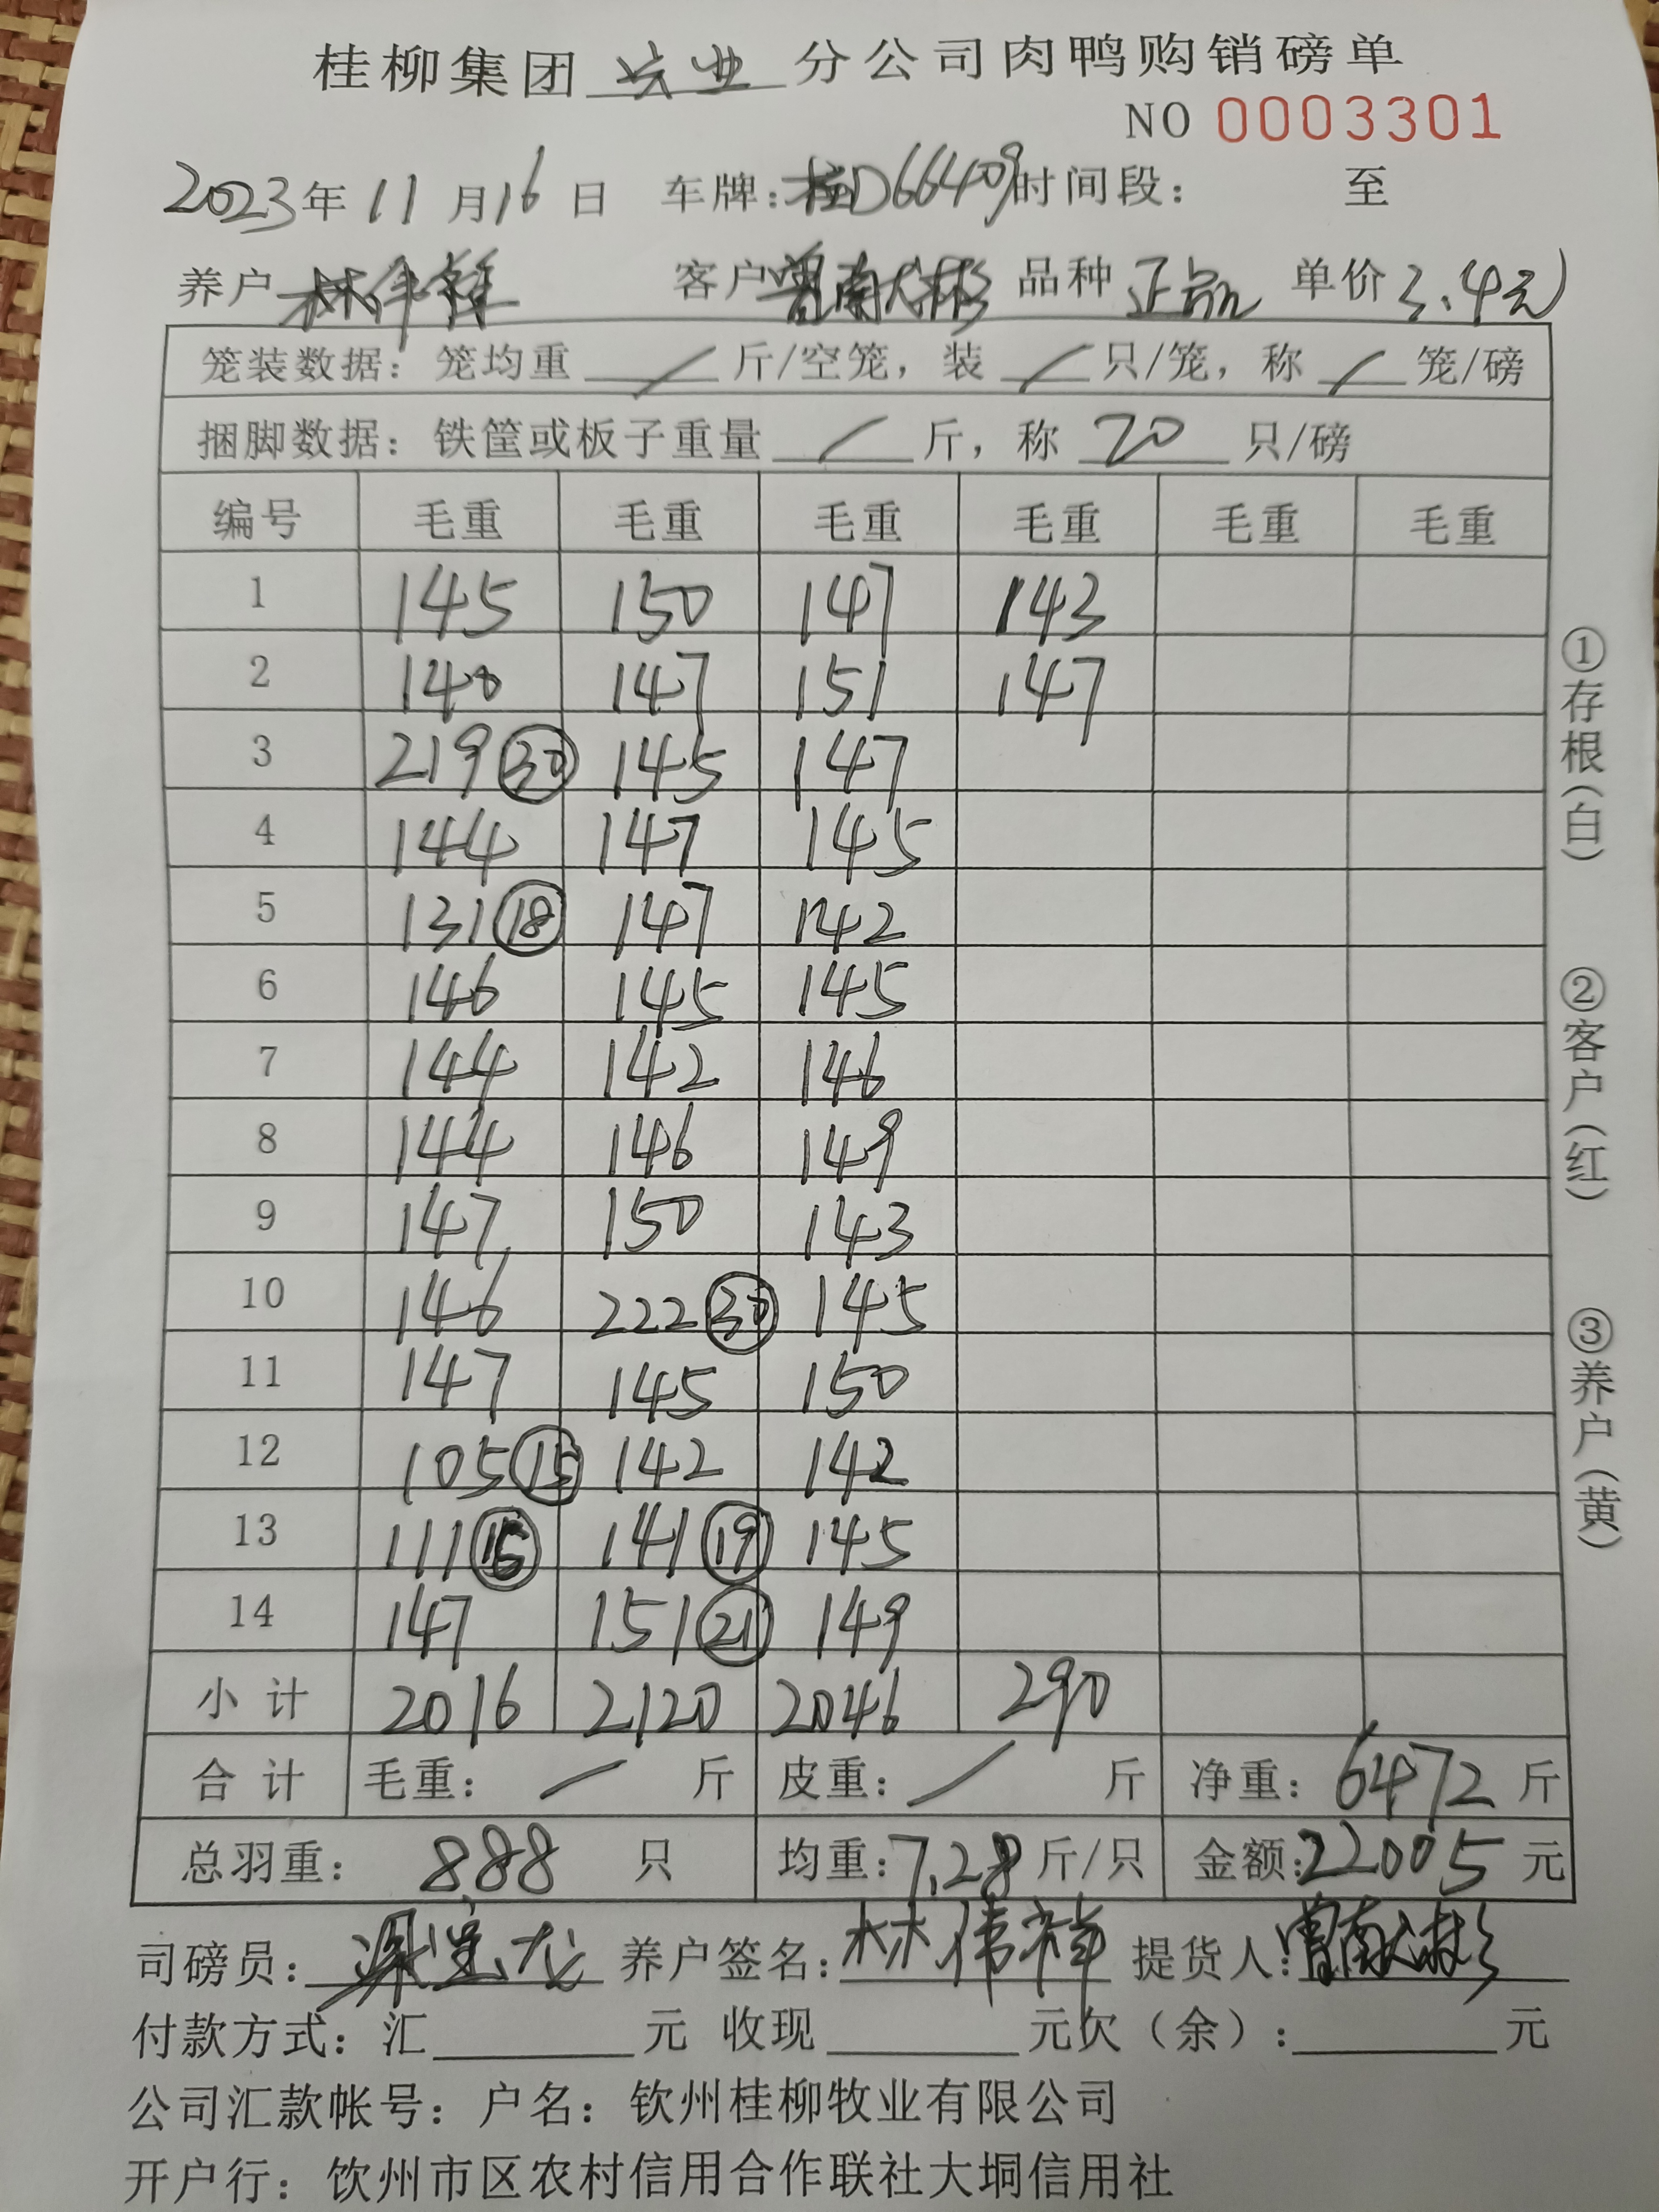 桂柳集团 兴业 分公司肉鸭购销磅单
NO 0003301
2023年11月16日 车牌:桂D66409时间段: 至
养户 林伟祥 客户 曾南彬 品种 正品 单价 3.4元
笼装数据: 笼均重 / 斤/空笼, 装 / 只/笼, 称 / 笼/磅
捆脚数据: 铁筐或板子重量 / 斤, 称 20 只/磅
编号 毛重 毛重 毛重 毛重 毛重 毛重
1 145 150 147 143
2 140 147 151 147
3 219 ㉚ 145 147
4 144 147 145
5 131 ⑱ 147 142
6 146 145 145
7 144 142 146
8 144 146 149
9 147 150 143
10 146 222 ㉚ 145
11 147 145 150
12 105 ⑮ 142 142
13 111 ⑮ 141 ⑲ 145
14 147 151 ㉑ 149
小计 2016 2120 2046 290
合计 毛重: / 斤 皮重: / 斤 净重: 6472 斤
总羽重: 888 只 均重: 7.28 斤/只 金额: 22005 元
司磅员: 养户签名: 林伟祥 提货人:
付款方式: 汇 元 收现 元欠(余): 元
公司汇款帐号: 户名: 钦州桂柳牧业有限公司
开户行: 钦州市区农村信用合作联社大垌信用社
①存根(白)
②客户(红)
③养户(黄)